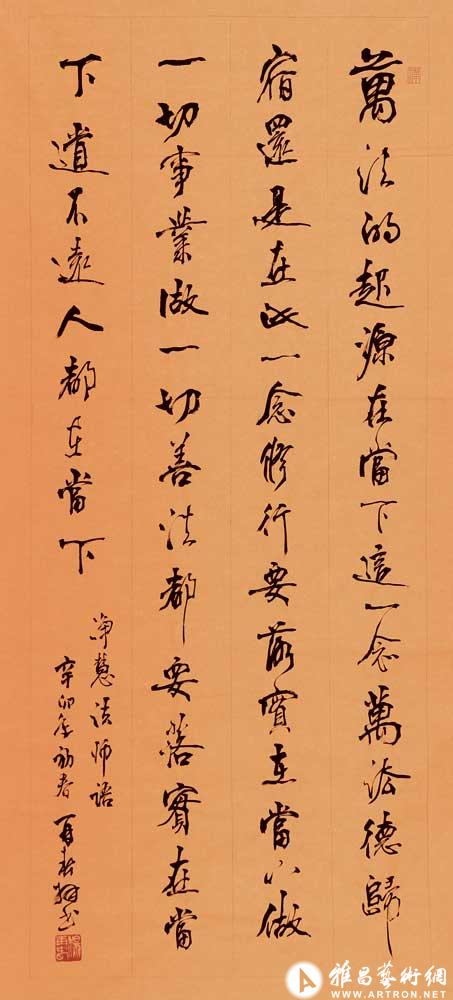 萬法的起源在當下這一念萬法德歸
宿還是在此一念修行要落實在當下做
一切事業做一切善法都要落實在當
下道不遠人都在當下
净慧法師語
辛卯年初春
雅昌藝術網
WWW.ARTRON.NET